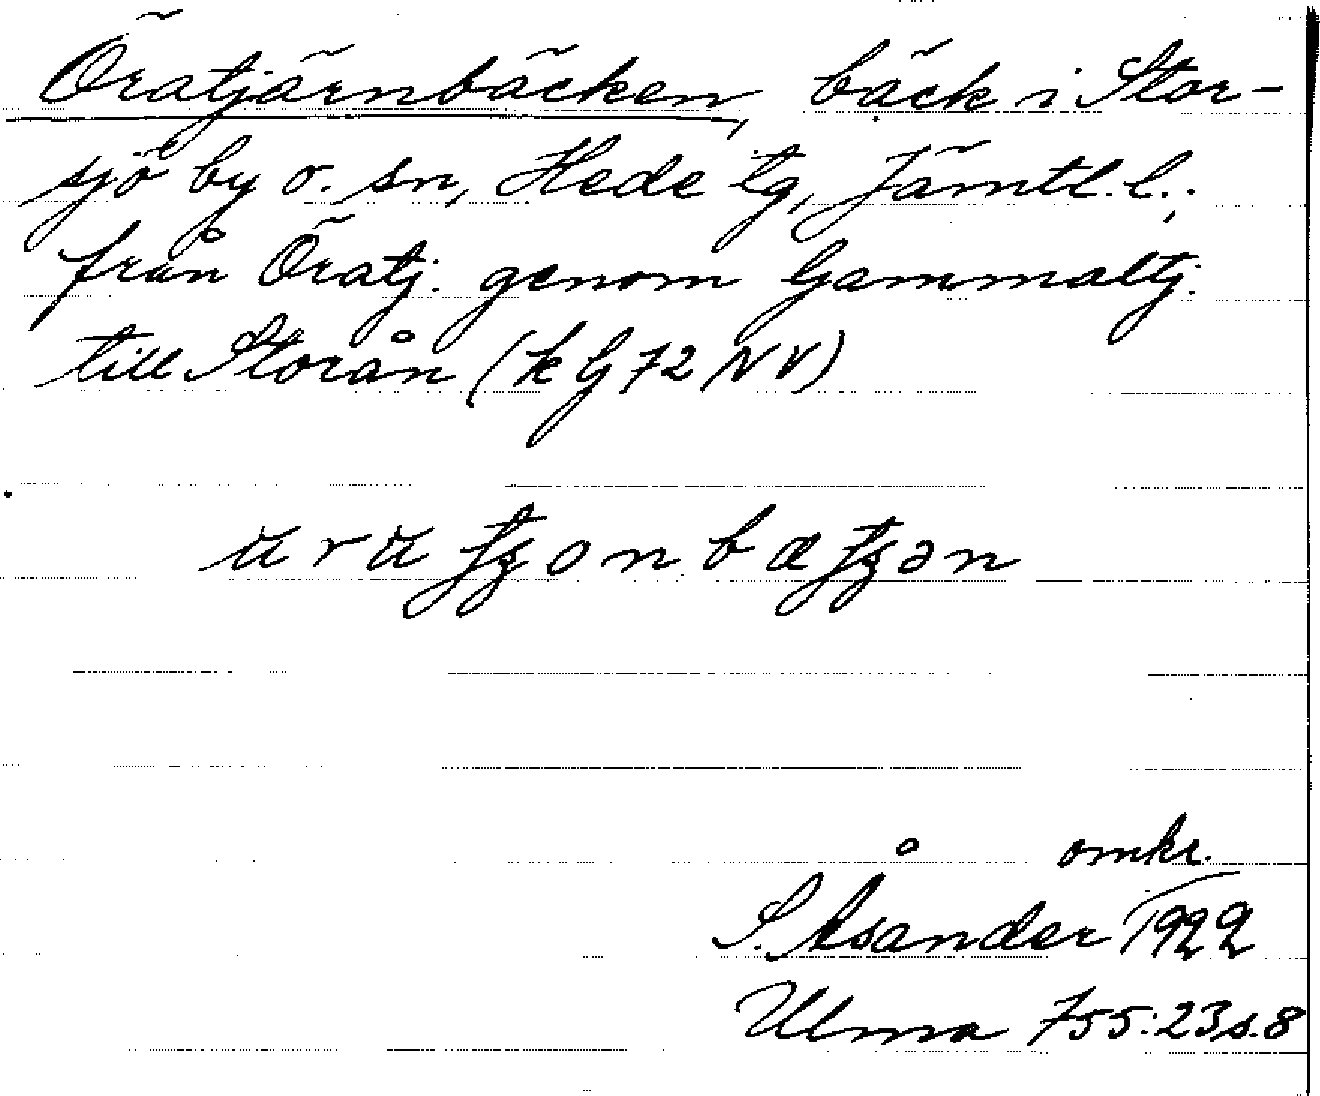 Öratjärnbäcken, bäck i Stor-
sjö by o. sn, Hede tg, Jämtl. l.;
från Öratj. genom Gammaltj.
till Storån (k G 72 NV)
omkr.
S. Åsander 1922
Ulma 755:23 s. 8